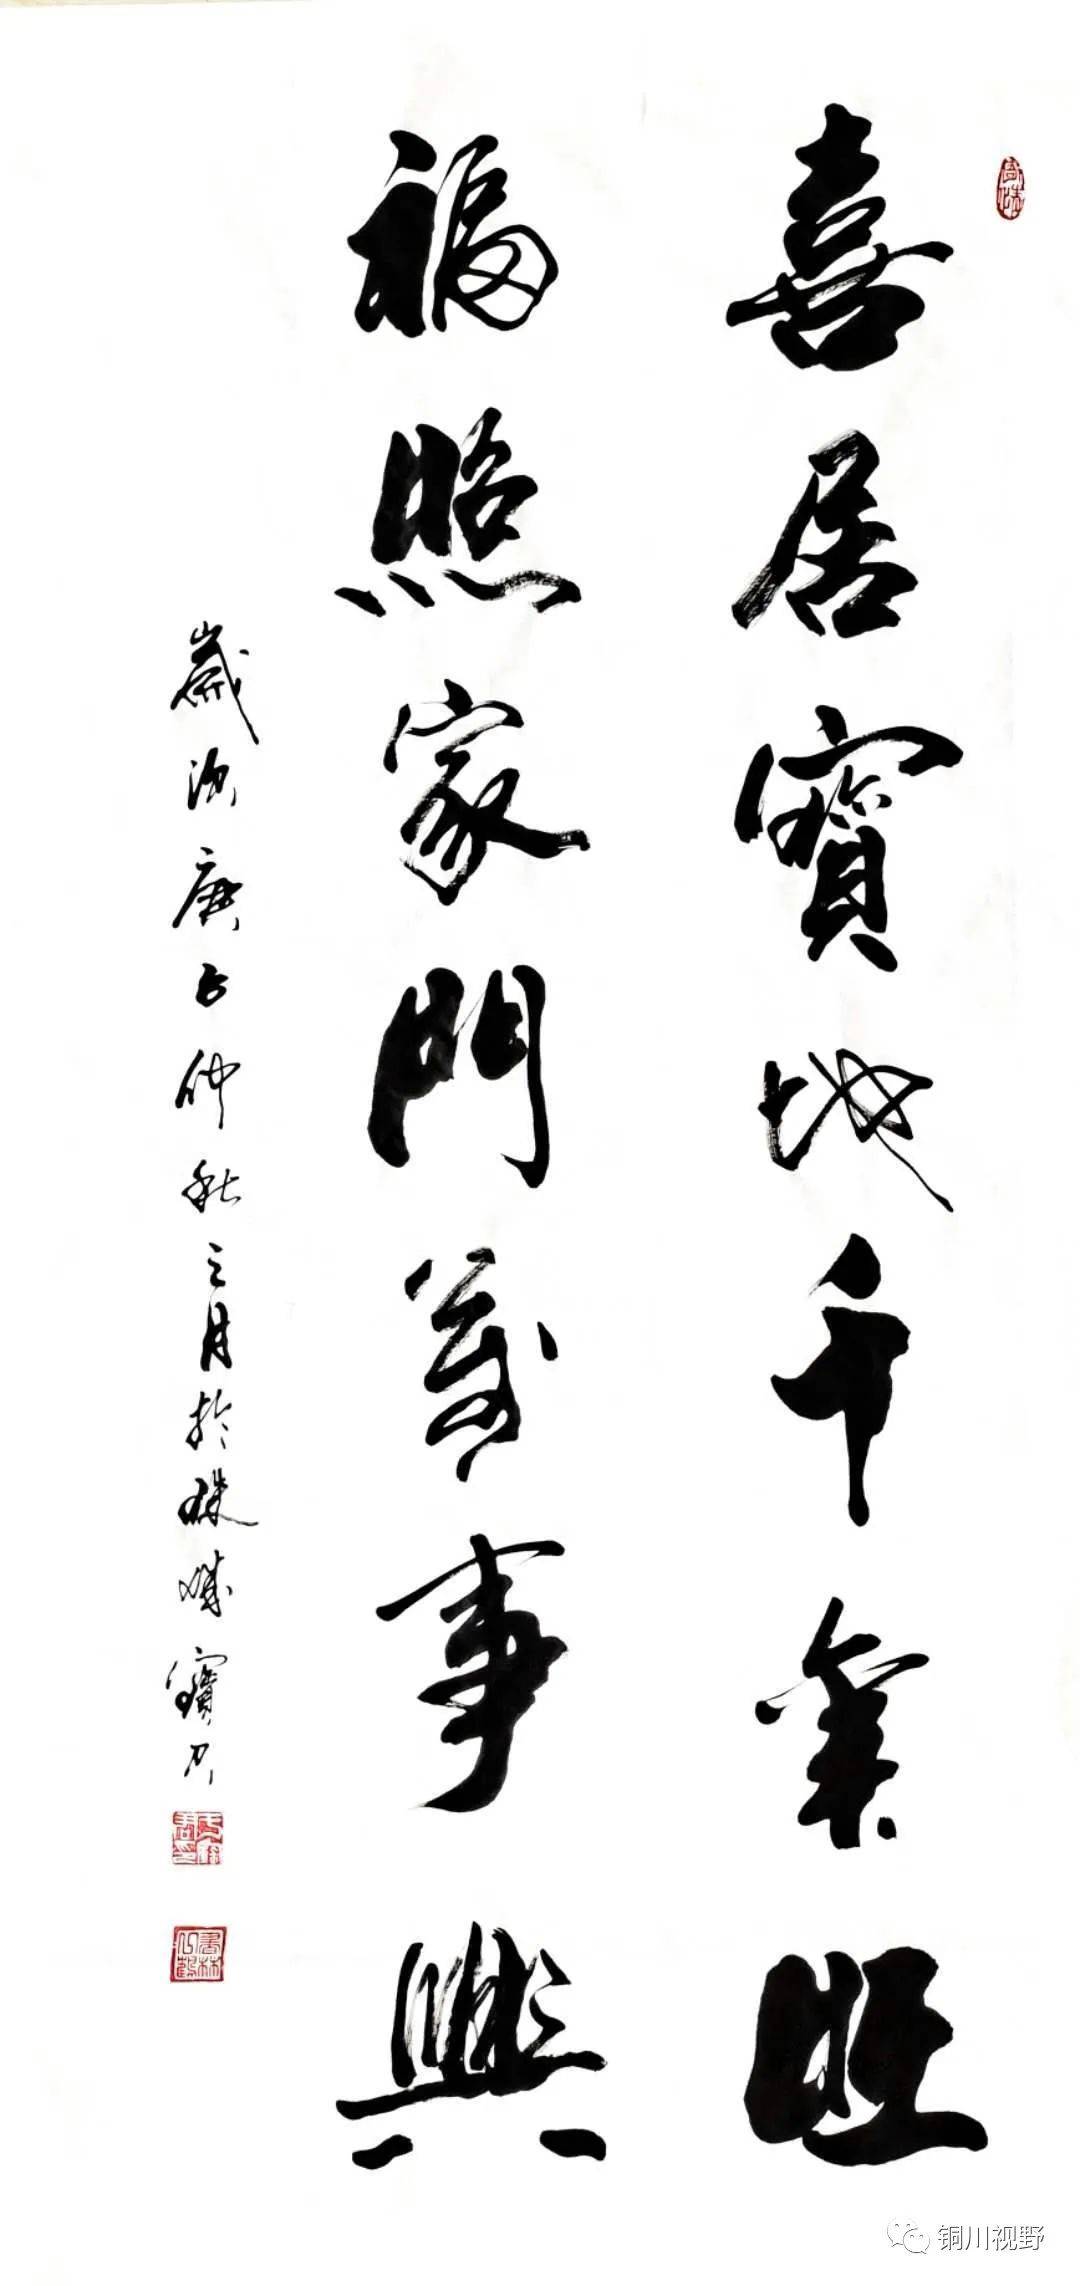 喜居寶地千年旺
福照家門萬事興
歲次庚子仲秋之月於珠城寶
铜川视野